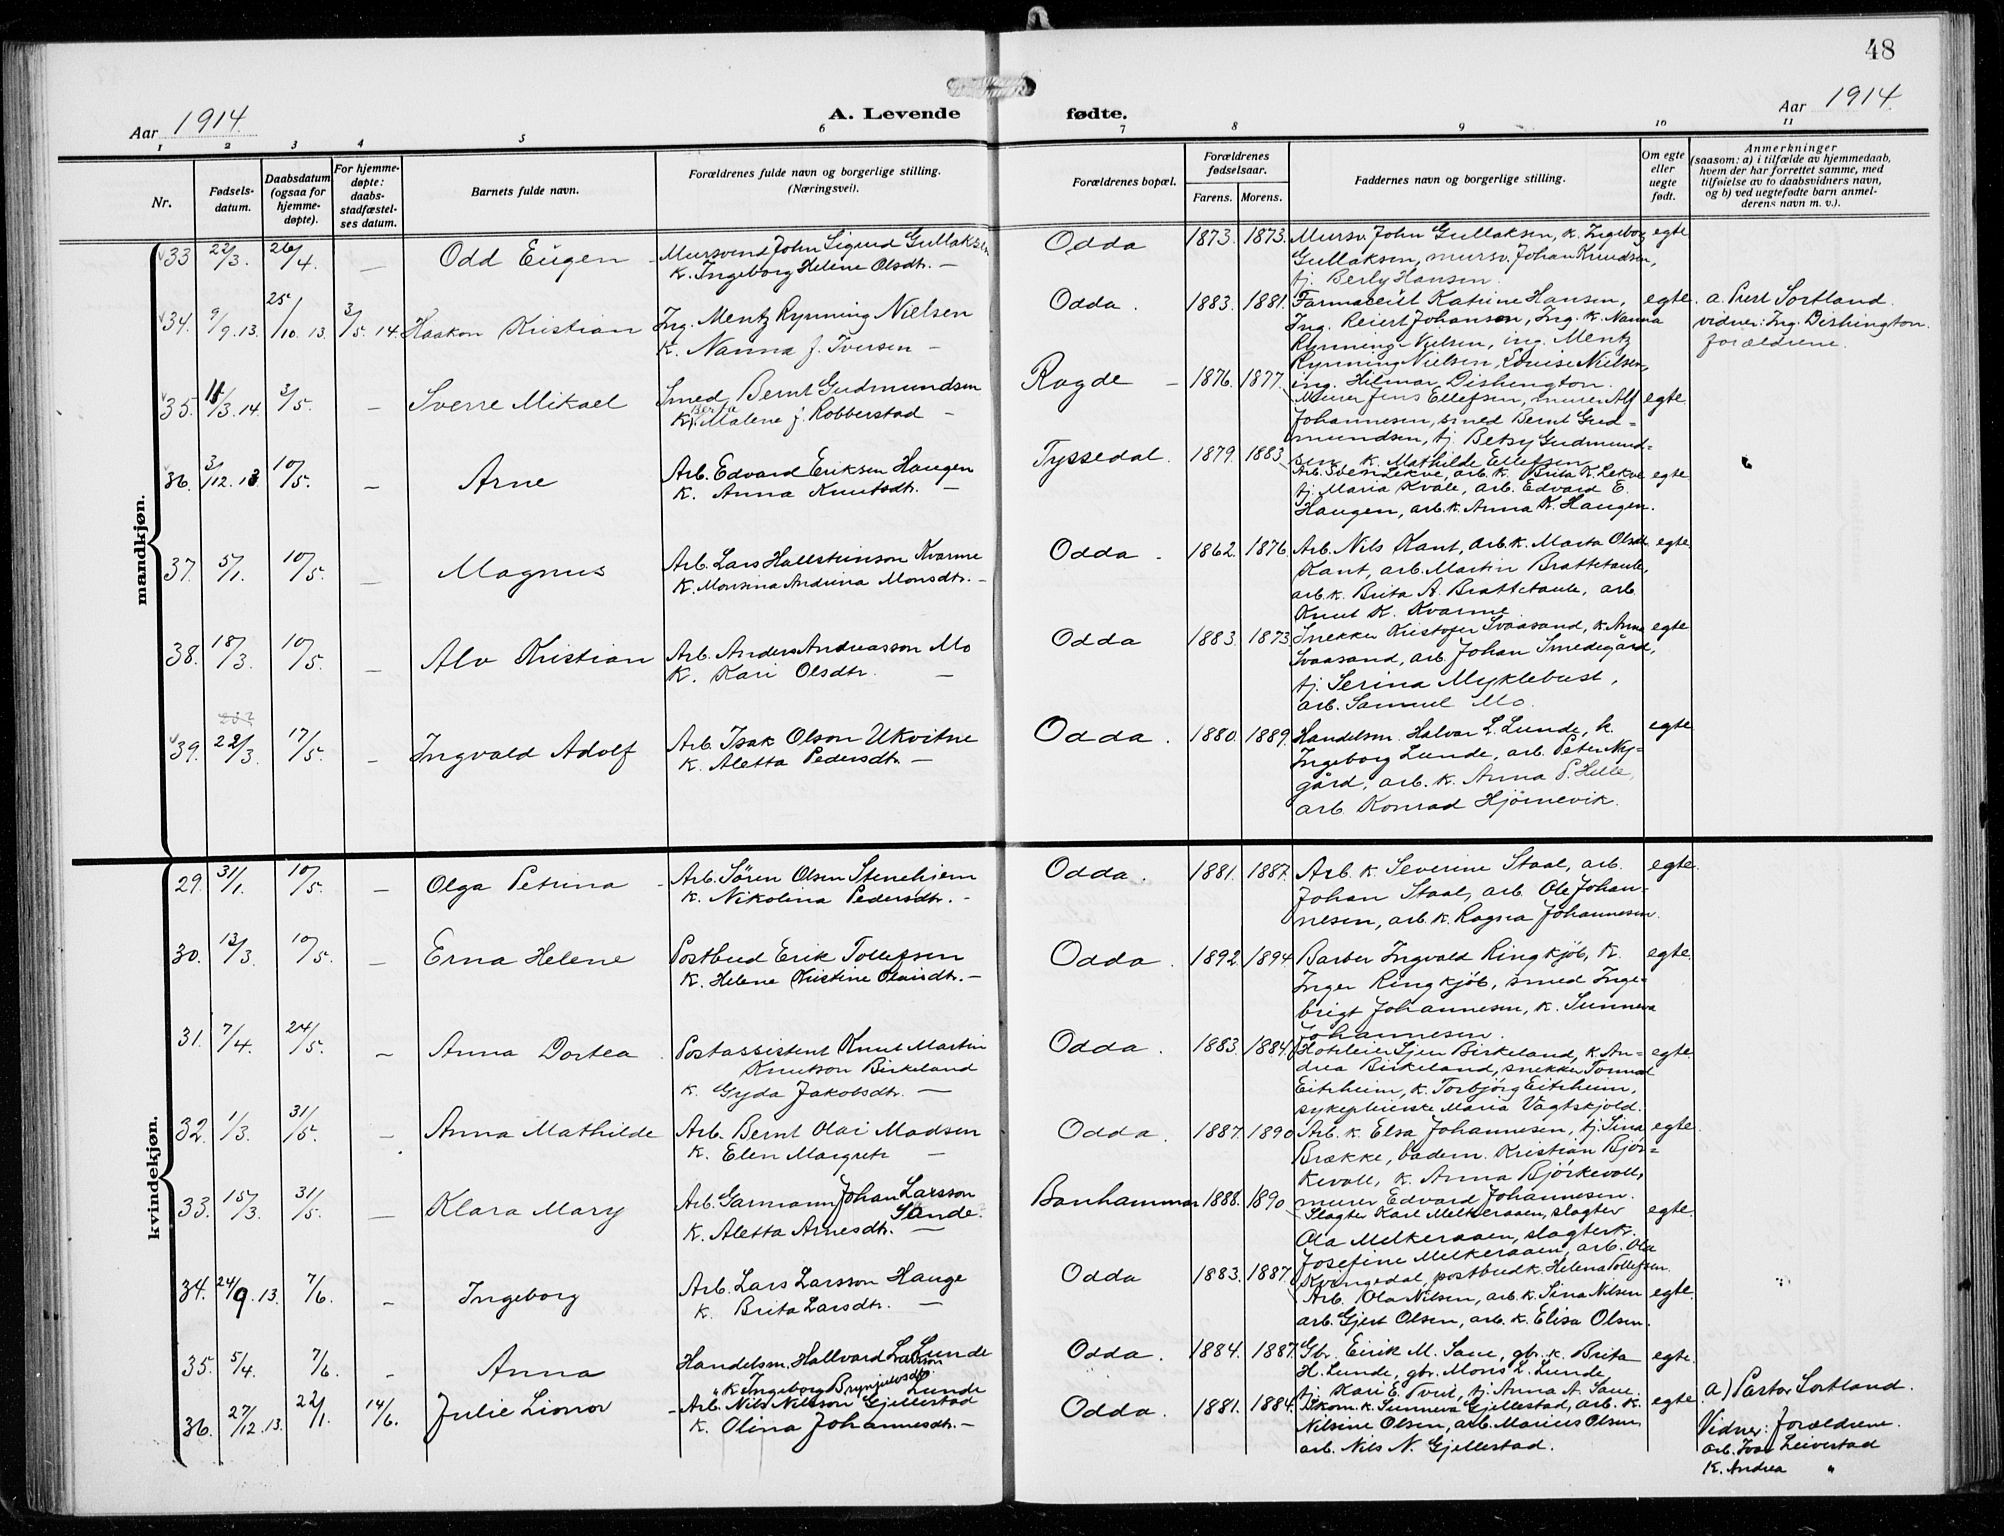 48
Aar 1914.
A. Levende fødte.
Aar 1914.
1 2 3 4 5 6 7 8 9 10 11
Nr.
Fødsels-
datum.
Daabsdatum
(ogsaa for
hjemme-
døpte).
For hjemme-
døpte:
daabs-
stadfæstel-
ses datum.
Barnets fulde navn.
Forældrenes fulde navn og borgerlige stilling.
(Næringsvei).
Forældrenes bopæl.
Forældrenes
fødselsaar.
Farens. Morens.
Faddernes navn og borgerlige stilling.
Om egte
eller
uegte
født.
Anmerkninger
(saasom: a) i tilfælde av hjemmedaab,
hvem der har forrettet samme, med
tilføielse av to daabsvidners navn,
og b) ved uegtefødte barn anmel-
derens navn m. v.).
mandkjøn.
33 22/3. 26/4. — Odd Eugen - Mursvend John Sigurd Gullaksen
K. Ingeborg Helene Olsdtr. —
Odda 1873. 1873. Mursv. John Gullaksen, k. Ingeborg egte
Gullaksen, mursv. Johan Knudsen,
tj. Berly Hansen.
34. 9/9.13. 25/10.13. 3/5.14. Haakon Kristian Ing. Mentz Rynning Nielsen
K. Nanna f. Iversen —
Odda. 1883. 1881. Farmaceut Katrine Hansen, egte. a. Prest Sortland.
Ing. Reiert Johansen, Ing. k. Nanna vidner: Ing. Dishington.
Rynning-Nielsen, ing. Mentz forældrene.
Rynning Nielsen, Louise Nielsen,
ing. Hilmar Dishington.
35. 11/3.14. 3/5. — Sverre Mikael Smed Bernt Gudmundsen
K. Berta Malene f. Robberstad —
Ragde — 1876. 1877. Murer Jens Ellefsen, murer Alf egte.
Johannesen, smed Bernt Gud-
mundsen, tj. Betsy Gudmund-
sen k. Mathilde Ellefsen
36. 3/12.13 10/5. — Arne Arb. Edvard Eriksen Haugen
K. Anna Knutsdtr. —
Tyssedal. 1879. 1883 Arb. Sven Lekve, arb. k. Brita K. Lekve egte
tj. Maria Kvale, arb. Edvard E.
Haugen, arb. k. Anna K. Haugen.
37. 5/1. 10/5. — Magnus Arb. Lars Hallsteinson Kvarme
K. Monsina Andrina Monsdtr. —
Odda. 1862. 1876. Arb. Nils Kant, arb. k. Marta Olsdtr. egte.
Kant, arb. Martin Brattetaule,
arb. k. Brita A. Brattetaule, arb.
Knut K. Kvarme.
38. 18/3. 10/5. — Alv Kristian Arb. Anders Andreasson Mo
K. Kari Olsdtr. —
Odda 1883. 1873 Snekker Kristofer Svaasand, k. Anna egte
Svaasand, arb. Johan Smedegård,
tj. Serina Myklebust,
arb. Samuel Mo.
39. 22/3. 17/5. — Ingvald Adolf Arb. Isak Olson Ukvitne
K. Aletta Pedersdtr. —
Odda. 1880. 1889. Handelsm. Halvar L. Lunde, k. egte
Ingeborg Lunde, arb. Peter Ny-
gård, arb. k. Anna P. Helle,
arb. Konrad Hjørnevik.
kvindekjøn.
29. 31/1. 10/5. — Olga Petrina - Arb. Søren Olsen Stenehjem
K. Nikolina Pedersdtr. —
Odda. 1881. 1887. Arb. k. Severine Staal, arb. egte.
Johan Staal, arb. Ole Johan-
nesen, arb. k. Ragna Johannesen.
30. 13/3. 10/5. — Erna Helene Postbud Erik Tollefsen
K. Helene Kristine Olaisdtr. —
Odda. 1892. 1894 Barber Ingvald Ringkjøb, k. egte.
Inger Ringkjøb, smed Inge-
brigt Johannesen, k. Sunneva
Johannesen.
31. 7/4. 24/5. — Anna Dortea. Postassistent Knut Martin
Knutson Birkeland
K. Gyda Jakobsdtr. —
Odda. 1883. 1884. Hoteleier Sjur Birkeland, k. An- egte.
drea Birkeland, snekker Tormod
Eitrheim, k. Torbjørg Eitrheim,
sykepleierske Maria Vagtskjold.
32. 1/3. 31/5. — Anna Mathilde Arb. Bernt Olai Madsen
K. Elen Margrete —
Odda. 1887. 1890 Arb. k. Elsa Johannesen, tj. Sina egte.
Brække, badem. Kristian Bjør-
kevoll, k. Anna Bjørkevoll,
murer Edvard Johannesen.
33. 15/3. 31/5. — Klara Mary Arb. Garmann Johan Larsson
Sande.
K. Aletta Arnesdtr. —
Banhammar. 1888. 1890 Slagter Karl Melkeraaen, slagter egte.
Ola Melkeraaen, slagterk.
Josefine Melkeraaen, arb. Ola
Kvingedal, postbudk. Helena Tollefsen.
34. 24/9.13. 7/6. — Ingeborg Arb. Lars Larsson Hauge
K. Brita Larsdtr. —
Odda 1883. 1887. Arb. Ola Nilsen, arb. k. Sina Nilsen egte.
arb. Gjert Olsen, arb. k. Elisa Olsen.
35. 5/4. 7/6. - Anna Handelsm. Hallvard Larsson Lunde
" K. Ingeborg Brynjulvsdtr. Lunde
Odda. 1884. 1887. Gbr. Eirik M. Saue, gbr. k. Brita egte.
H. Lunde, gbr. Mons L. Lunde,
tj. Kari E. Tveit, tj. Anna A. Saue.
36. 27/12.13. 22/1. 14/6. Julie Lionor - Arb. Nils Nilsson Gjellestad
K. Olina Johannesdtr. —
Odda. 1881. 1884. k. Sunneva Gjellestad, arb. k. egte. a) Pastor Sortland.
Nilsine Olsen, arb. Marius Olsen Vidner: Forældrene.
arb. Nils N. Gjellestad. arb. Ivar Leivestad
K. Andrea "